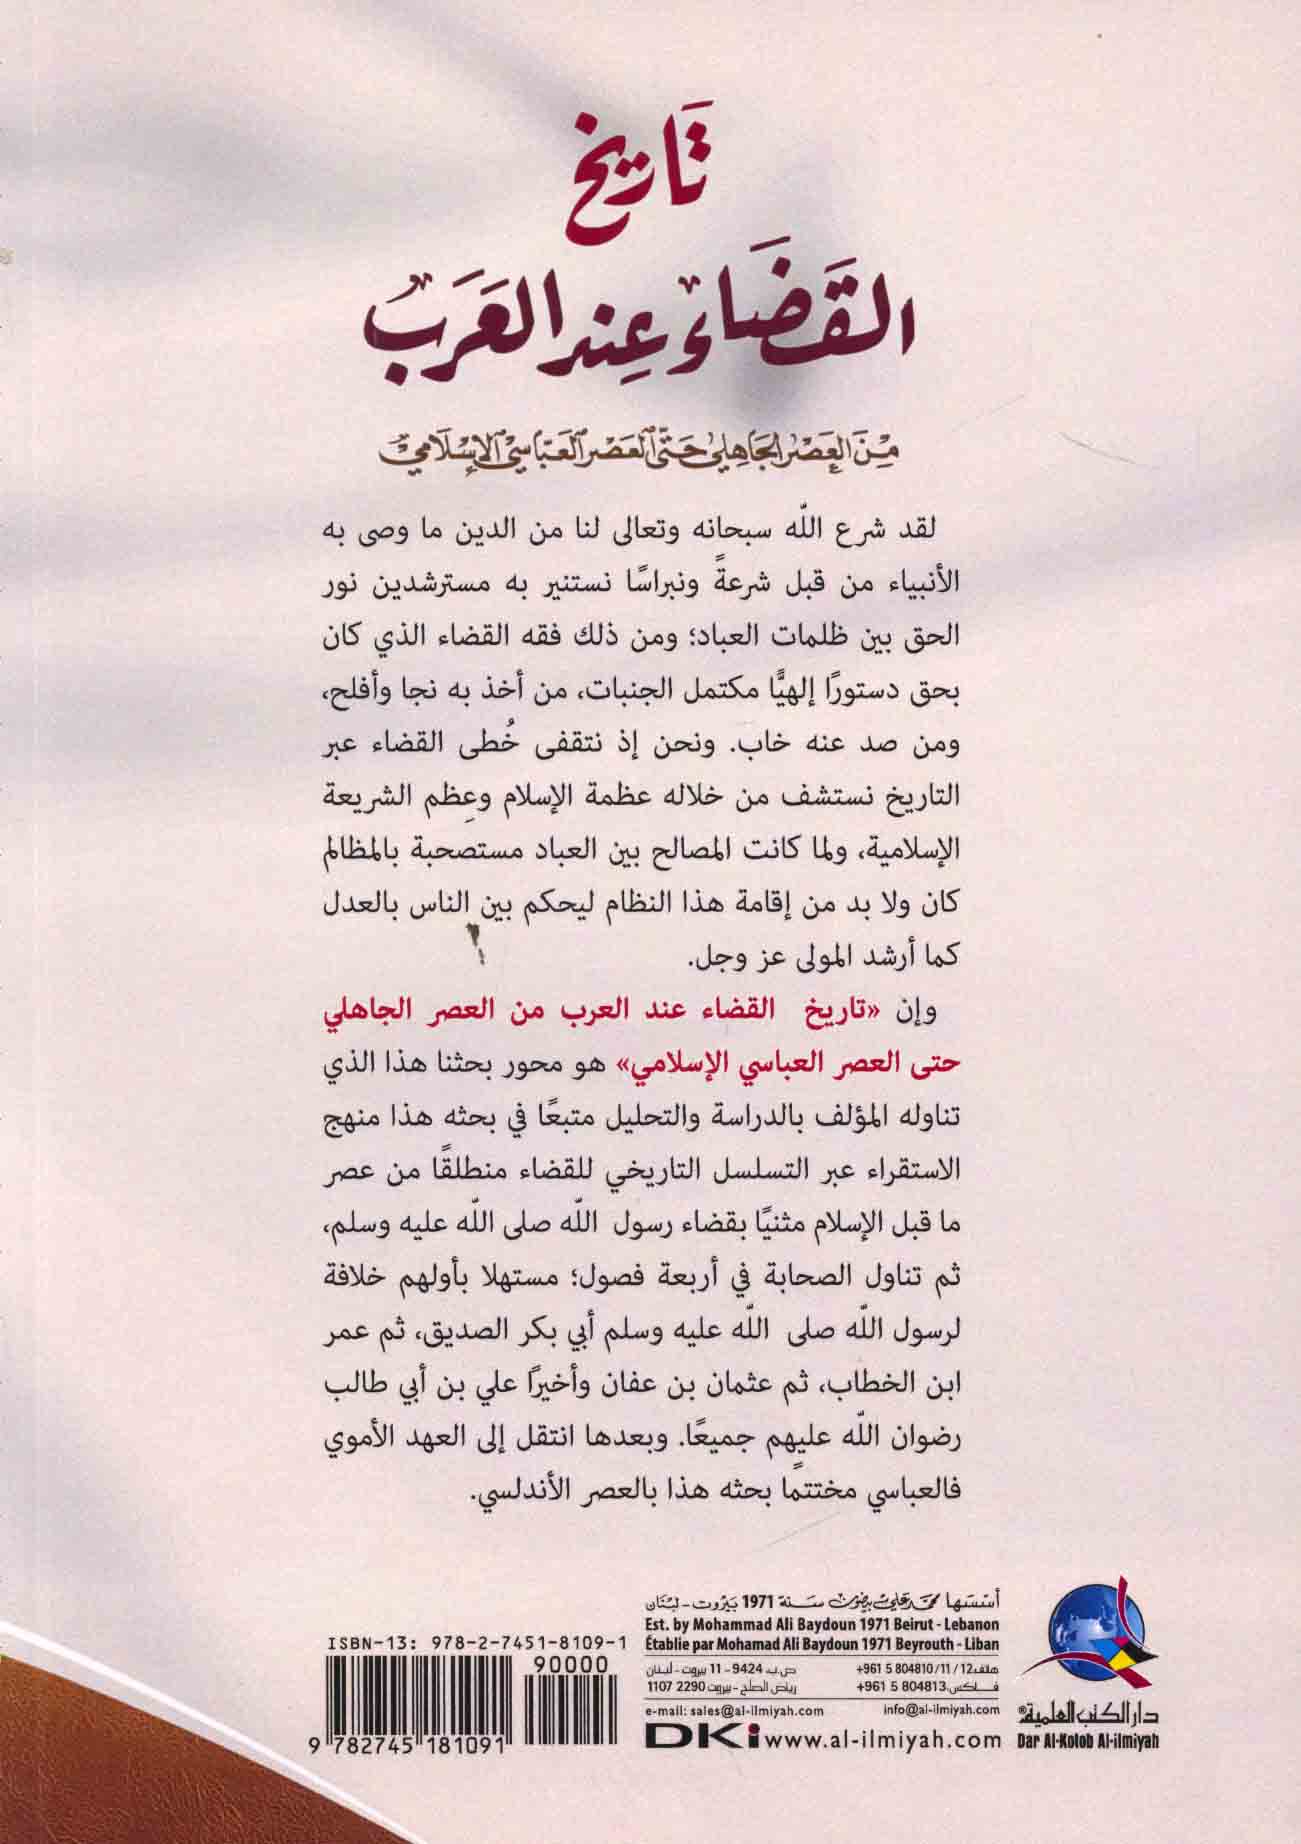 تَاريخ
القَضَاء عِند العَرَب
مِنَ العَصْر الجَاهِلي حَتَّى العَصْر العَبّاسي الإسْلَامي
لقد شرع اللّه سبحانه وتعالى لنا من الدين ما وصى به
الأنبياء من قبل شرعةً ونبراسًا نستنير به مسترشدين نور
الحق بين ظلمات العباد؛ ومن ذلك فقه القضاء الذي كان
بحق دستورًا إلهيًّا مكتمل الجنبات، من أخذ به نجا وأفلح،
ومن صد عنه خاب. ونحن إذ نتقفى خُطى القضاء عبر
التاريخ نستشف من خلاله عظمة الإسلام وعِظم الشريعة
الإسلامية، ولما كانت المصالح بين العباد مستصحبة بالمظالم
كان ولا بد من إقامة هذا النظام ليحكم بين الناس بالعدل
كما أرشد المولى عز وجل.
وإن «تاريخ القضاء عند العرب من العصر الجاهلي
حتى العصر العباسي الإسلامي» هو محور بحثنا هذا الذي
تناوله المؤلف بالدراسة والتحليل متبعًا في بحثه هذا منهج
الاستقراء عبر التسلسل التاريخي للقضاء منطلقًا من عصر
ما قبل الإسلام مثنيًا بقضاء رسول اللّه صلى اللّه عليه وسلم،
ثم تناول الصحابة في أربعة فصول؛ مستهلا بأولهم خلافة
لرسول اللّه صلى اللّه عليه وسلم أبي بكر الصديق، ثم عمر
ابن الخطاب، ثم عثمان بن عفان وأخيرًا علي بن أبي طالب
رضوان اللّه عليهم جميعًا. وبعدها انتقل إلى العهد الأموي
فالعباسي مختتمًا بحثه هذا بالعصر الأندلسي.
أسّسَها محمّد علي بيضون سَنة 1971 بَيْروت - لبْنان
Est. by Mohammad Ali Baydoun 1971 Beirut - Lebanon
Établie par Mohamad Ali Baydoun 1971 Beyrouth - Liban
هاتف: +961 5 804810/11/12 ص.ب: 9424 - 11 بيروت - لبنان
فاكس: +961 5 804813 رياض الصلح - بيروت 2290 1107
e-mail: sales@al-ilmiyah.com info@al-ilmiyah.com
DKi www.al-ilmiyah.com
دار الكتب العلمية®
Dar Al-Kotob Al-ilmiyah
ISBN-13: 978-2-7451-8109-1
90000
9 782745 181091